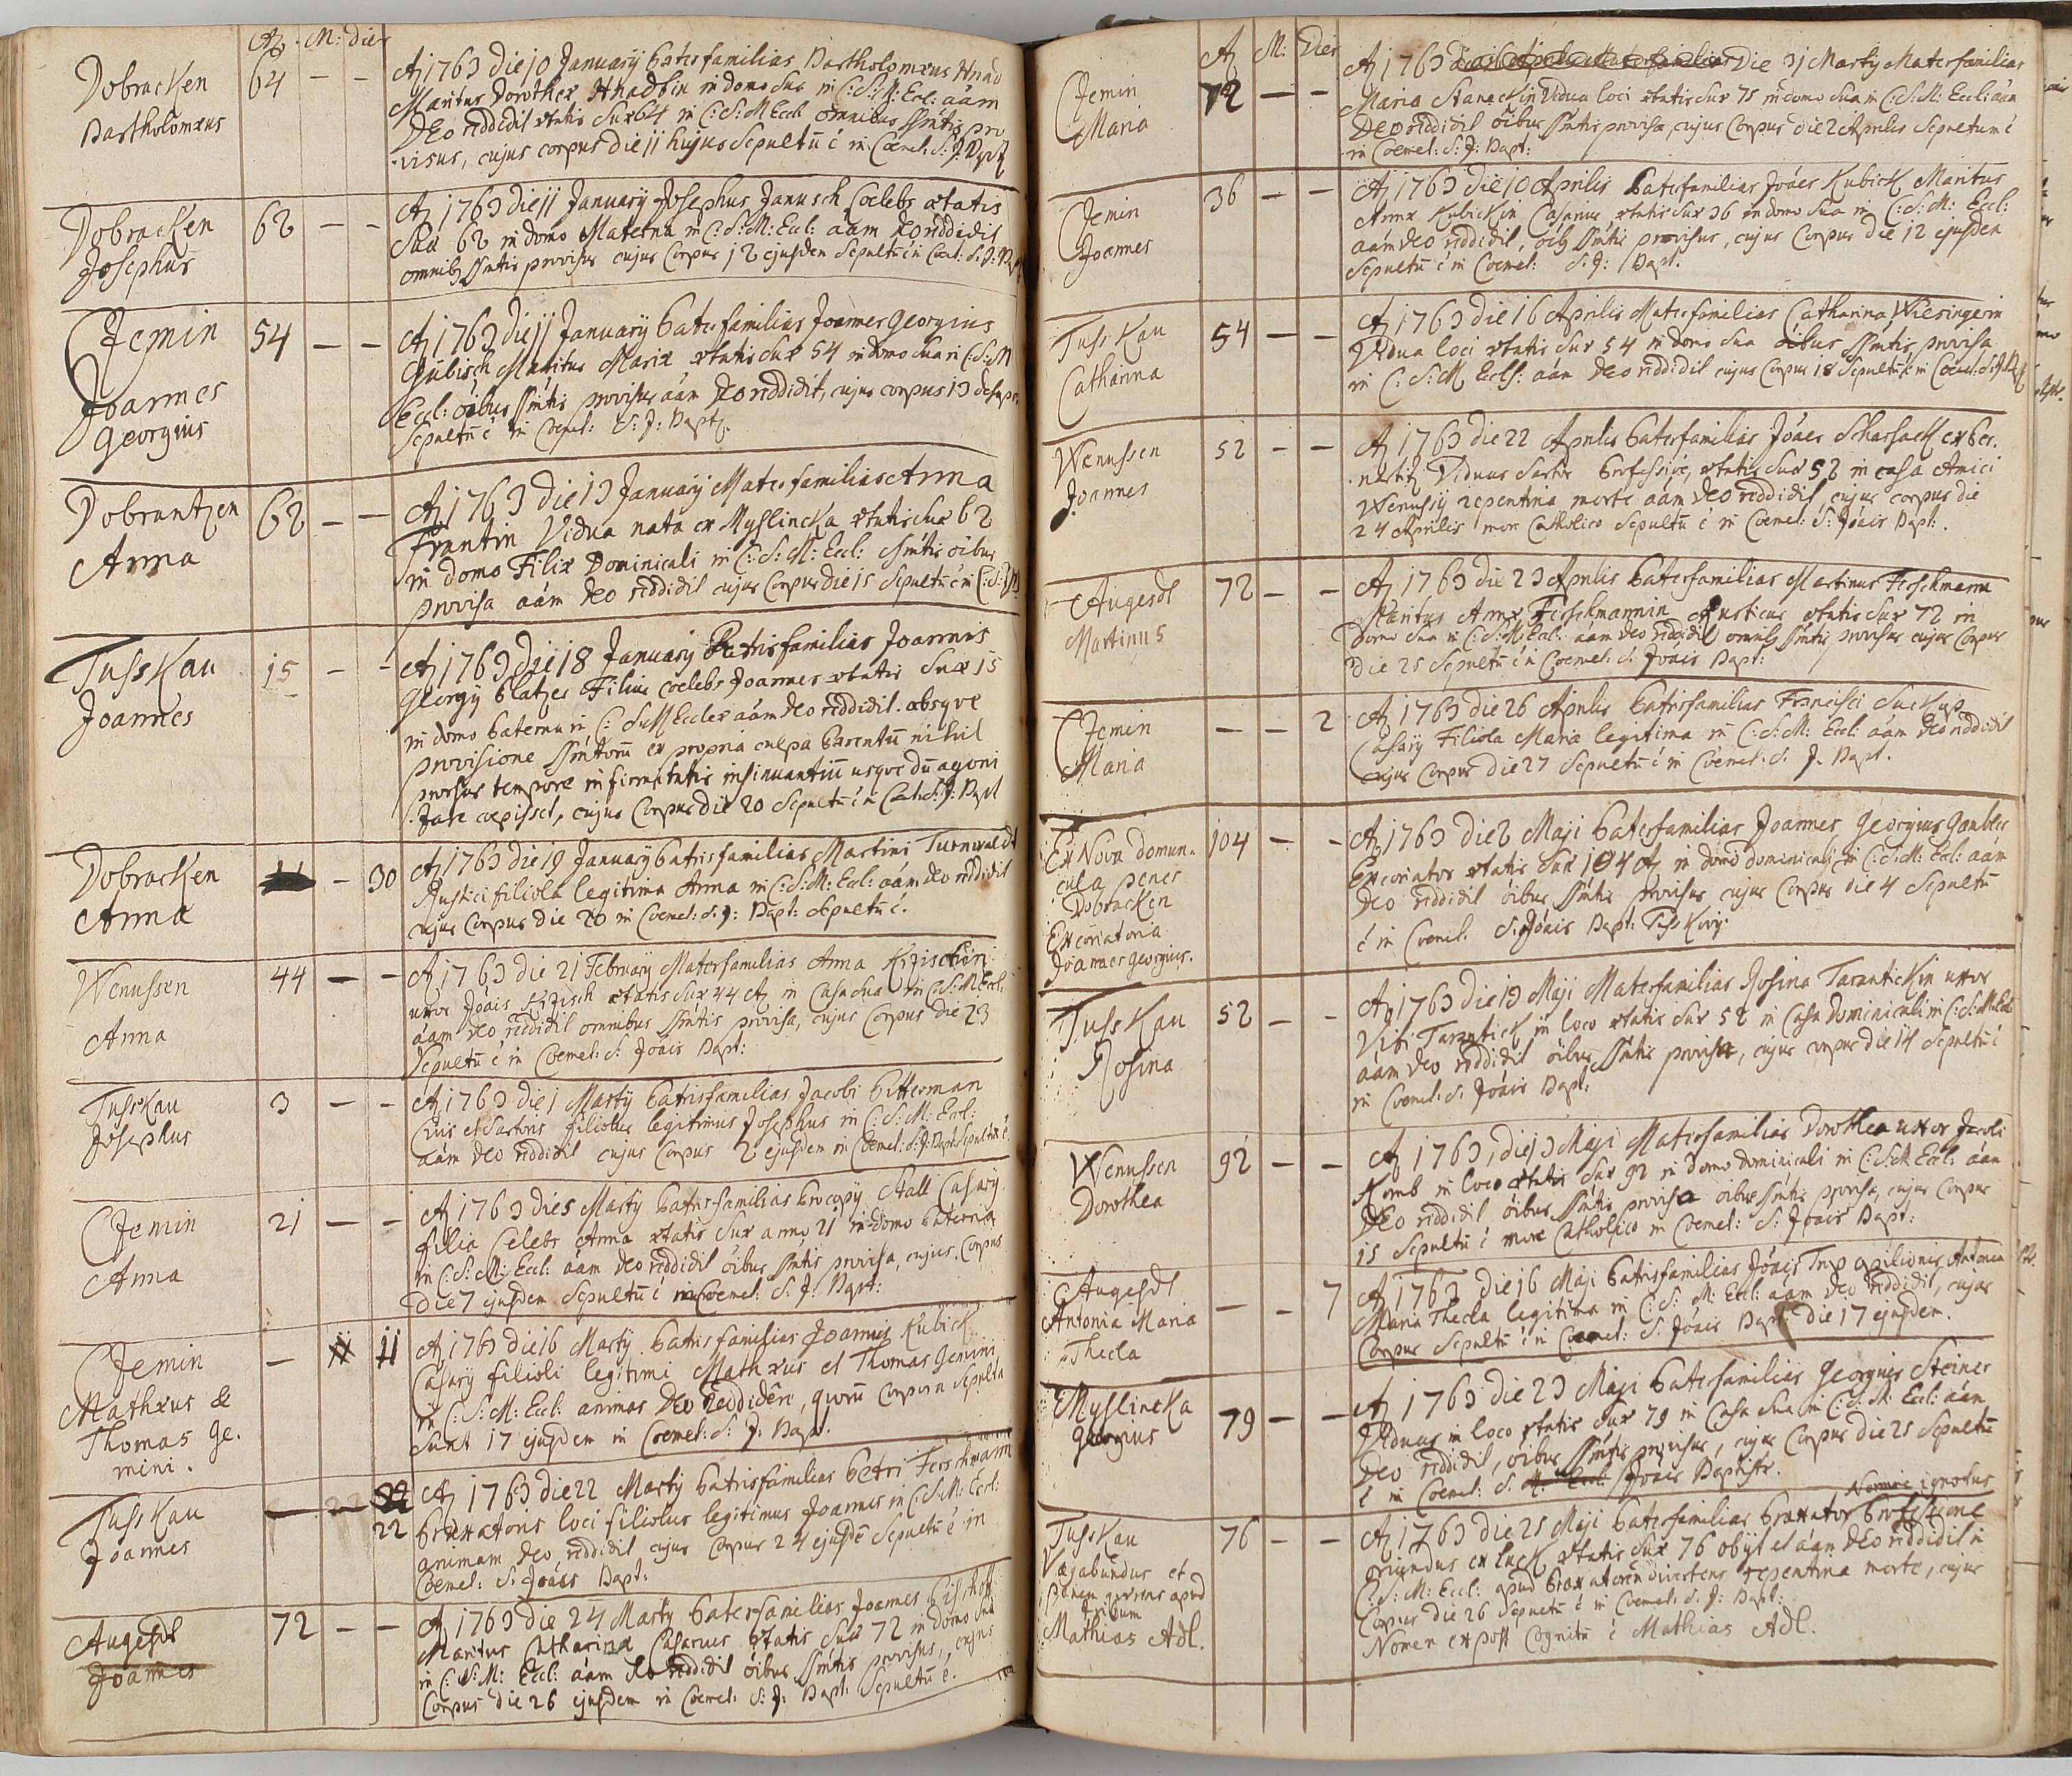 Aō. M: dies
Dobracken
Bartholomæus
64 – –
Aō 1763 die 10 Januarÿ Paterfamilias Bartholomæus Hnad
Maritus Dorotheæ Hnadkin in domo sua in C: S: M: Eccl: aám
Deo reddidit ætatis suæ 64 in C: S: M Eccl omnibus ssmtis pro
visus, cujus corpus die 11 hujus Sepultū ē in Coemet: S: J: Bapt
Dobracken
Josephus
62 – –
Aō 1763 die 11 Januarÿ Josephus Janusch Coelebs ætatis
suæ 62 in domo Materna in C: S: M: Eccl: aám Deo reddidit
omnibq ssmtis provisus cujus Corpus 12 ejusdem Sepultū ē in Coem: S: J: Bapt
Cżemin
Joannes
Georgius
54 – –
Aō 1763 die 11 Januarÿ Paterfamilias Joannes Georgius
Gubisch Maritus Mariæ ætatis suæ 54 in domo sua in C: S: M
Eccl: oíbus ssmtis provisus aám Deo reddidit, cujus corpus 13
Sepultū ē in Coemet: S: J: Bapt.
Dobrantzen
Anna
62 – –
Aō 1763 die 13 Januarÿ Materfamilias Anna
Frantin Vidua nata ex Myslincka ætatis suæ 62
in domo Filiæ Dominicali in C: S: M: Eccl: ssmtis oíbus
provisa aám Deo reddidit cujus Corpus die 15 Sepultū ē in C: S: J: B
Tusskau
Joannes
15 – –
Aō 1763 die 18 Januarÿ Patrisfamilias Joannis
Georgÿ Platzer Filius coelebs Joannes ætatis suæ 15
in domo paterna in C: S: M Eccles aám Deo reddidit absqve
provisione ssmtorū ex propria culpa Parentū nihil
prorsus tempore infirmitatis insinuantiū usqve dū agoni
zare coepisset, cujus Corpus die 20 Sepultū ē in Coemet: S: J: Bapt
Dobracken
Anna
– 30
Aō 1763 die 19 Januarÿ Patrisfamilias Martini Turnwaldt
Rustici filiola legitima Anna in C: S: M: Eccl: aám Deo reddidit
cujus Corpus die 20 in Coemet: S: J: Bapt: Sepultū ē.
Wenussen
Anna
44 – –
Aō 1763 die 21 February Materfamilias Anna Kżischin
uxor Joáis Kżisch ætatis suæ 44 Aō in Casa sua in C: S: M Eccl:
aám Deo reddidit omnibus ssmtis provisa, cujus Corpus die 23
Sepultū ē in Coemet: S: Joáis Bapt:
Tusskau
Josephus
3 – –
Aō 1763 die 1 Martÿ Patrisfamilias Jacobi Pitterman
Civis et Sartoris filiolus legitimus Josephus in C: S: M: Eccl:
aám Deo reddidit cujus Corpus 2 ejusdem in Coemet: S: J: Bapt: Sepultū ē
Cżemin
Anna
21 – –
Aō 1763 die 5 Martÿ Patrisfamilias Procopÿ Stall Casarÿ
filia Celebs Anna ætatis suæ anno 21 in domo paterna
in C: S: M: Eccl: aám Deo reddidit oíbus ssmtis provisa, cujus Corpus
die 7 ejusdem Sepultū ē in Coemet: S: J: Bapt:
Cżemin
Mathæus &
Thomas Ge-
mini.
– 11 11
Aō 1763 die 16 Martÿ Patrisfamilias Joannis Kubick
Casarÿ filioli legitimi Mathæus et Thomas Gemini
in C: S: M: Eccl: animas Deo reddidêre, quorū Corpora Sepulta
sunt 17 ejusdem in Coemet: S: J: Bapt.
Tusskau
Joannes
– 22 22
22
Aō 1763 die 22 Martÿ Patrisfamilias Petri Ferschmann
Braxatoris loci filiolus legitimus Joannes in C: S: M: Eccl:
animam Deo reddidit cujus Corpus 24 ejusdē Sepultū ē in
Coemet: S. Joáes Bapt:
Augesdl
Joannes
72 – –
Aō 1763 die 24 Martÿ Paterfamilias Joannes Bischoff
Maritus Catharinæ Casarius ætatis suæ 72 in domo sua
in C: S: M: Eccl: aám Deo reddidit oíbus ssmtis provisus, cujus
Corpus die 26 ejusdem in Coemet: S: J: Bapt: Sepultū ē.
Aō M: Dies
Cżemin
Maria
72 – –
Aō 1763 Die 31 Martÿ Materfamilias
Maria Stanackin Vidua loci ætatis suæ 75 in domo sua in C: S: M: Eccl: aám
Deo reddidit oíbus ssmtis provisa, cujus Corpus die 2 Aprilis Sepultum ē
in Coemet: S: J: Bapt:
Cżemin
Joannes
36 – –
Aō 1763 die 10 Aprilis Paterfamilias Joáes Kubick Maritus
Annæ Kubickin Casarius ætatis suæ 36 in domo sua in C: S: M: Eccl:
aám Deo reddidit, oíbq ssmtis provisus, cujus Corpus die 12 ejusdem
Sepultū ē in Coemet: S. J: Bapt.
Tusskau
Catharina
54 – –
Aō 1763 die 16 Aprilis Materfamilias Catharina Wiesingerin
Vidua loci ætatis suæ 54 in domo sua oíbus ssmtis provisa
in C: S: M. Eccls: aám Deo reddidit cujus Corpus 18 Sepultū ē in Coemet: S: J: Bapt
Wenussen
Joannes
52 – –
Aō 1763 die 22 Aprilis Paterfamilias Joáes Scharsack ex Ber-
nartitz Viduus Sartor Professione, ætatis suæ 52 in casa Amici
Wenussÿ repentina morte aám Deo reddidit, cujus corpus die
24 Aprilis more Catholico Sepultū ē in Coemet: S: Joáis Bapt:
Augesdl
Martinus
72 – –
Aō 1763 die 23 Aprilis Paterfamilias Martinus Ferschmann
Maritus Annæ Ferschmannin Rusticus ætatis suæ 72 in
domo sua in C: S: M. Eccl: aám Deo reddidit omnibq ssmtis provisus cujus Corpus
die 25 Sepultū ē in Coemet: S. Joáis Bapt:
Cżemin
Maria
– – 2
Aō 1763 die 26 Aprilis Patrisfamilias Francisci Suckup
Casarÿ Filiola Maria legitima in C: S: M: Eccl: aám Deo reddidit
cujus Corpus die 27 Sepultū ē in Coemet: S. J. Bapt.
Ex Nova domun-
cula penes
Dobracken
Excoriatoria
Joannes Georgius.
104 – –
Aō 1763 die 2 Maji Paterfamilias Joannes Georgius Gaubler
Excoriator ætatis suæ 104 Aō in domo dominicali in C: S: M: Eccl: aám
Deo reddidit oíbus ssmtis provisus cujus Corpus die 4 Sepultū
ē in Coemet. S: Joáis Bapt: Tusskovÿ.
Tusskau
Rosina
52 – –
Aō 1763 die 13 Maji Materfamilias Rosina Tarantickin uxor
Viti Tarantick in loco ætatis suæ 52 in Casa Dominicali in C: S: M: Eccl
aám Deo reddidit oíbus ssmtis provisa, cujus corpus die 14 Sepultū ē
in Coemet: S. Joáis Bapt:
Wenussen
Dorothea
92 – –
Aō 1763, die 13 Maji Materfamilias Dorothea uxor Jacobi
Komb in loco ætatis suæ 92 in domo dominicali in C: S: M. Eccl: aám
Deo reddidit oíbus ssmtis provisa oíbus ssmtis provisa, cujus Corpus
15 Sepultū ē more Catholico in Coemet: S: Joáis Bapt:
Augesdl
Antonia Maria
Thecla
– – 7
Aō 1763 die 16 Maji Patrisfamilias Joáis Trap opilionis Antonia
Maria Thecla legitima in C: S: M: Eccl: aám Deo reddidit, cujus
Corpus Sepultū ē in Coemet: S. Joáis Bapt: die 17 ejusdem.
Myslincka
Georgius
79 – –
Aō 1763 die 23 Maji Paterfamilias Georgius Steiner
Viduus in loco ætatis suæ 79 in Casa sua in C: S: M: Eccl: aám
Deo reddidit, oíbus ssmtis provisus, cujus Corpus die 25 Sepultū
ē in Coemet: S. M: Eccl: Joáis Baptistæ.
Tusskau
Vagabundus et
panem quærens apud
Tribum
Mathias Adl.
76 – –
Nomine ignotus
Aō 1763 die 25 Maji Paterfamilias Braxator Professione
oriundus ex Luck ætatis suæ 76 obÿt et aám Deo reddidit in
C: S: M: Eccl: apud Braxatorem divertens repentina morte, cujus
Corpus die 26 Sepultū ē in Coemet: S: J: Bapt:
Nomen ex post Cognitū ē Mathias Adl.